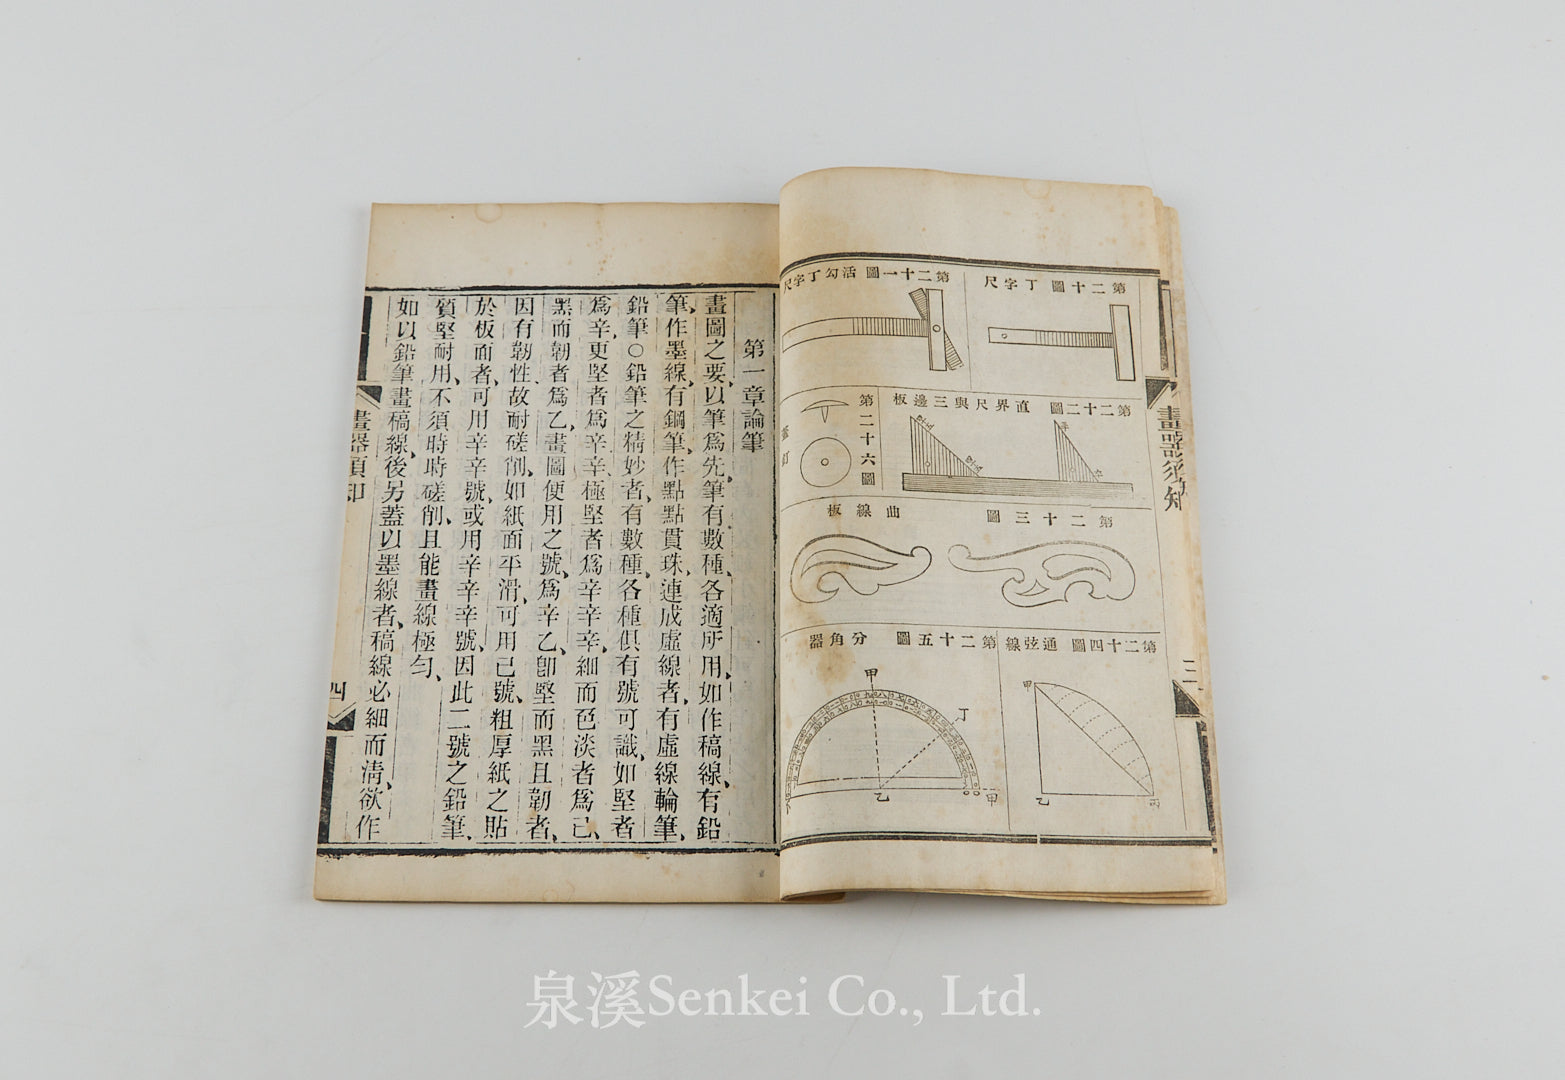 畫器須知
二
第二十圖 丁字尺
第二十一圖 活勾丁字尺
第二十二圖 直界尺與三邊板
第二十六圖
釘
第二十三圖
曲線板
第二十四圖 通弦線
甲
乙
丙
第二十五圖 分角器
甲
丁
乙
甲
第一章論筆
畫圖之要、以筆爲先、筆有數種、各適所用、如作稿線、有鉛
筆、作墨線、有鋼筆、作點點貫珠、連成虛線者、有虛線輪筆、
鉛筆○鉛筆之精妙者、有數種、各種俱有號可識、如堅者
爲辛、更堅者爲辛辛、極堅者爲辛辛辛、細而色淡者爲己、
黑而韌者爲乙、畫圖便用之號、爲辛乙、卽堅而黑且韌者、
因有韌性、故耐磋削、如紙面平滑、可用己號、粗厚紙之貼
於板面者、可用辛辛號、或用辛辛辛號、因此二號之鉛筆、
質堅耐用、不須時時磋削、且能畫線極勻、
如以鉛筆畫稿線、後另蓋以墨線者、稿線必細而淸、欲作
畫器須知
四
泉溪Senkei Co., Ltd.